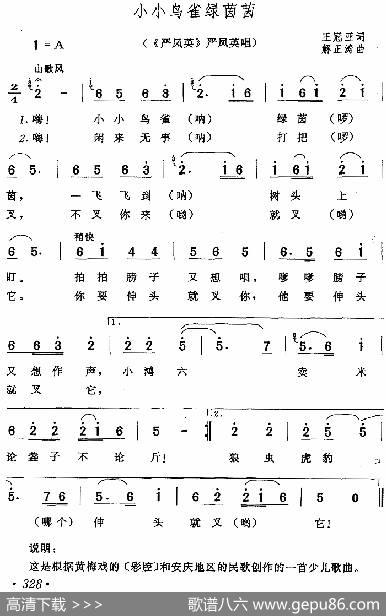 小小鸟雀绿茵茵
1=A
(《严凤英》严凤英唱)
王冠亚词
解正涛曲
山歌风
2/4
2 6 5 6 8 6 5 6 2. 1 6 1 6 1 2
1.嗨! 小小鸟雀(呐) 绿茵(啰)
2.嗨! 闲来无事(呐) 打把(啰)
6 5. 6 5 6 3 2. 1 6 1 6 1 2
茵, 一飞飞到(呐) 树头上
叉, 不叉你来(哟) 就叉(哟)
稍快
6 5. 6 1 4 4 5 2 1 2 6. 5 6 5
叮。 拍拍膀子又想唱,嗲嗲膀子
它。 你要伸头就叉你,他要伸头
1.
6 6 3 2 2 2 5 5. 7 5. 6 1
又想作声,小鸿六 安米
就叉它,
2.
6 2 2 2 1 6 5 2 2 2 5 5
论袋子不论斤! 狼虫虎豹
5. 7 6 5 5 6 2 2 1 6 5 5
(哪个) 伸头就叉(哟) 它!
说明:
这是根据黄梅戏的《彩腔》和安庆地区的民歌创作的一首少儿歌曲。
· 328 ·
高清下载 >>
歌谱八六 www.gepu86.com